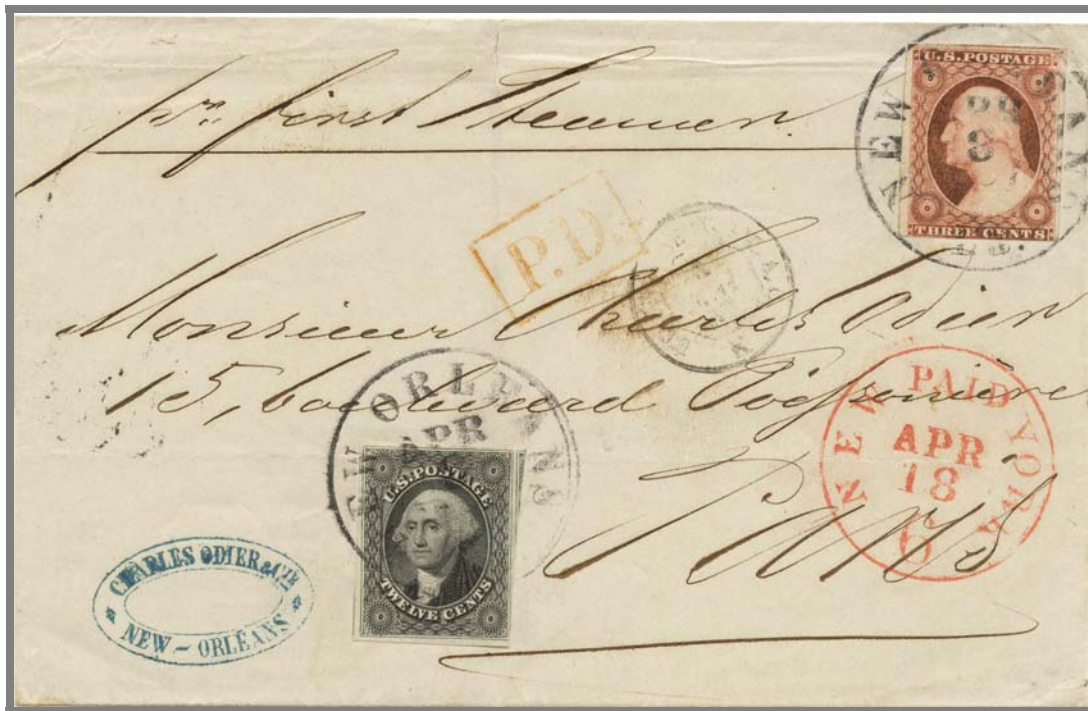 pr. first Steamer.
U.S. POSTAGE
THREE CENTS
NEW
APR
8
La.
P.D.
Monsieur Charles Odier
15, boulevard Poissonière
Paris
NEW ORLEANS
APR
U.S. POSTAGE
TWELVE CENTS
NEW PAID YORK
APR
18
6
CHARLES ODIER & CIE
NEW-ORLEANS